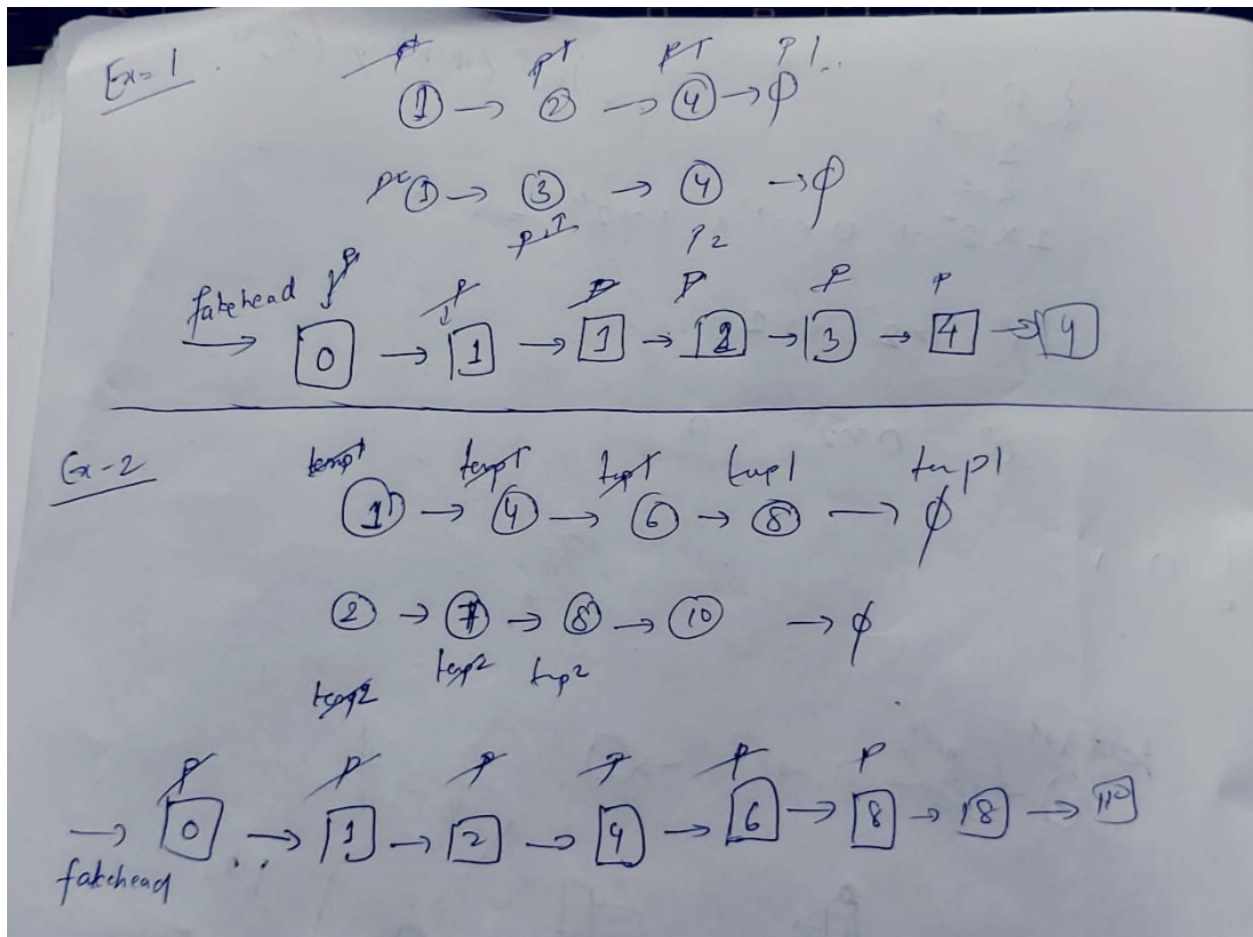 Ex-1
p1 p1 p1 p1
1 → 2 → 4 → φ
1 → 3 → 4 → φ
p2
fakehead p p p p p p
→ 0 → 1 → 1 → 2 → 3 → 4 → 4
Ex-2
temp1 temp1 temp1 temp1 temp1
1 → 4 → 6 → 8 → φ
2 → 7 → 8 → 10 → φ
temp2 temp2 temp2
p p p p p p
→ 0 → 1 → 2 → 4 → 6 → 8 → 8 → 10
fakehead